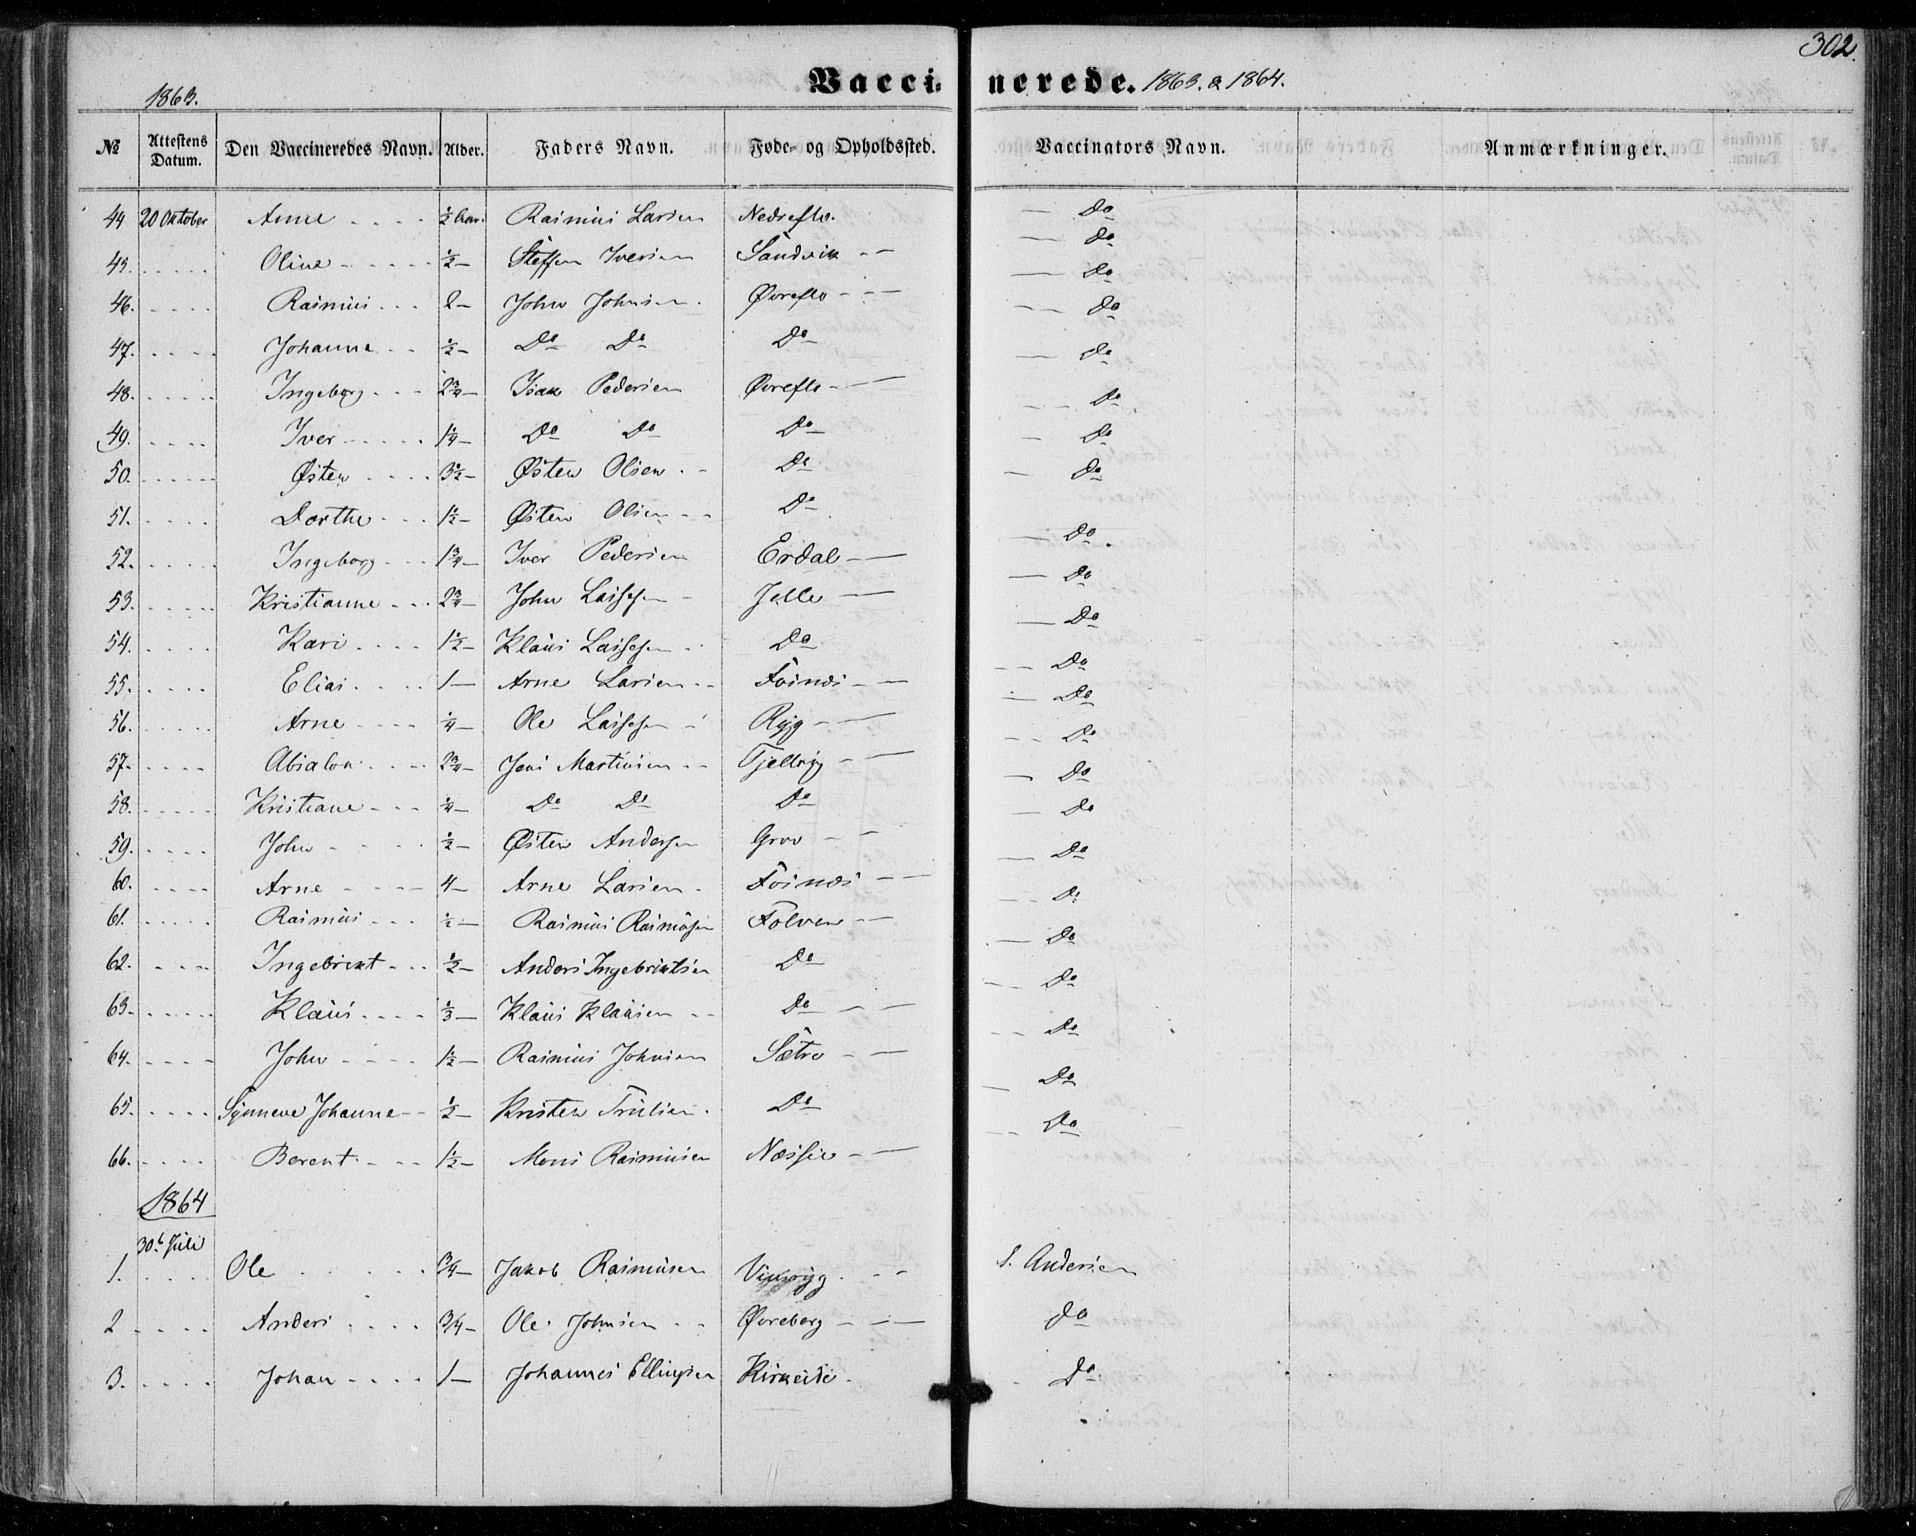 302.
1863. Vacci- nerede. 1863. & 1864.
№ Attestens Datum. Den Vaccineredes Navn. Alder. Faders Navn. Føde- og Opholdssted. Vaccinators Navn. Anmærkninger.
44 20 Oktober Anne ½ Rasmus Larsen Nedreflo. — Do
45. Oline ½ — Steffen Iversen Sandvik — Do
46. Rasmus 2 — John Johnsen Øvreflo — Do
47. Johanne ½ — Do Do Do — Do
48. Ingeborg 2¾ — Isak Pedersen Øvreflo — Do
49. Iver 1¼ — Do Do Do — Do
50. Østen 3½ — Østen Olsen Do — Do
51. Dorthe 1½ — Østen Olsen Do — Do
52. Ingeborg 1¾ — Iver Pedersen Erdal — Do
53. Kristianne 2¾ — John Lassesen Jelle — Do
54. Kari 1½ — Klaus Lassesen Do — Do
55. Elias 1 — Arne Larsen Fosnæs — Do
56. Arne ¼ — Ole Lassesen Ryg — Do
57. Absalon 2¾ — Jens Martinsen Tjellryg — Do
58. Kristiane ¼ — Do Do Do — Do
59. John ½ — Østen Andersen Grov — Do
60. Arne 4 — Arne Larsen Fosnæs — Do
61. Rasmus ½ — Rasmus Rasmusen Folven — Do
62. Ingebrikt ½ — Anders Ingebriktsen Do — Do
63. Klaus ⅓ — Klaus Klausen Do — Do
64. John 1½ — Rasmus Johnsen Sætre — Do
65. Synneve Johanne ½ — Kristen Trulsen Do — Do
66. Berent 1½ — Mons Rasmusen Næsse — Do
1864
30te Juli
1. Ole ¾ — Jakob Rasmusen Vinsryg S. Andersen
2 Anders ¾ — Ole Johnsen Øvreberg do
3. Johan 1 — Johannes Ellingsen Kirkeide. Do